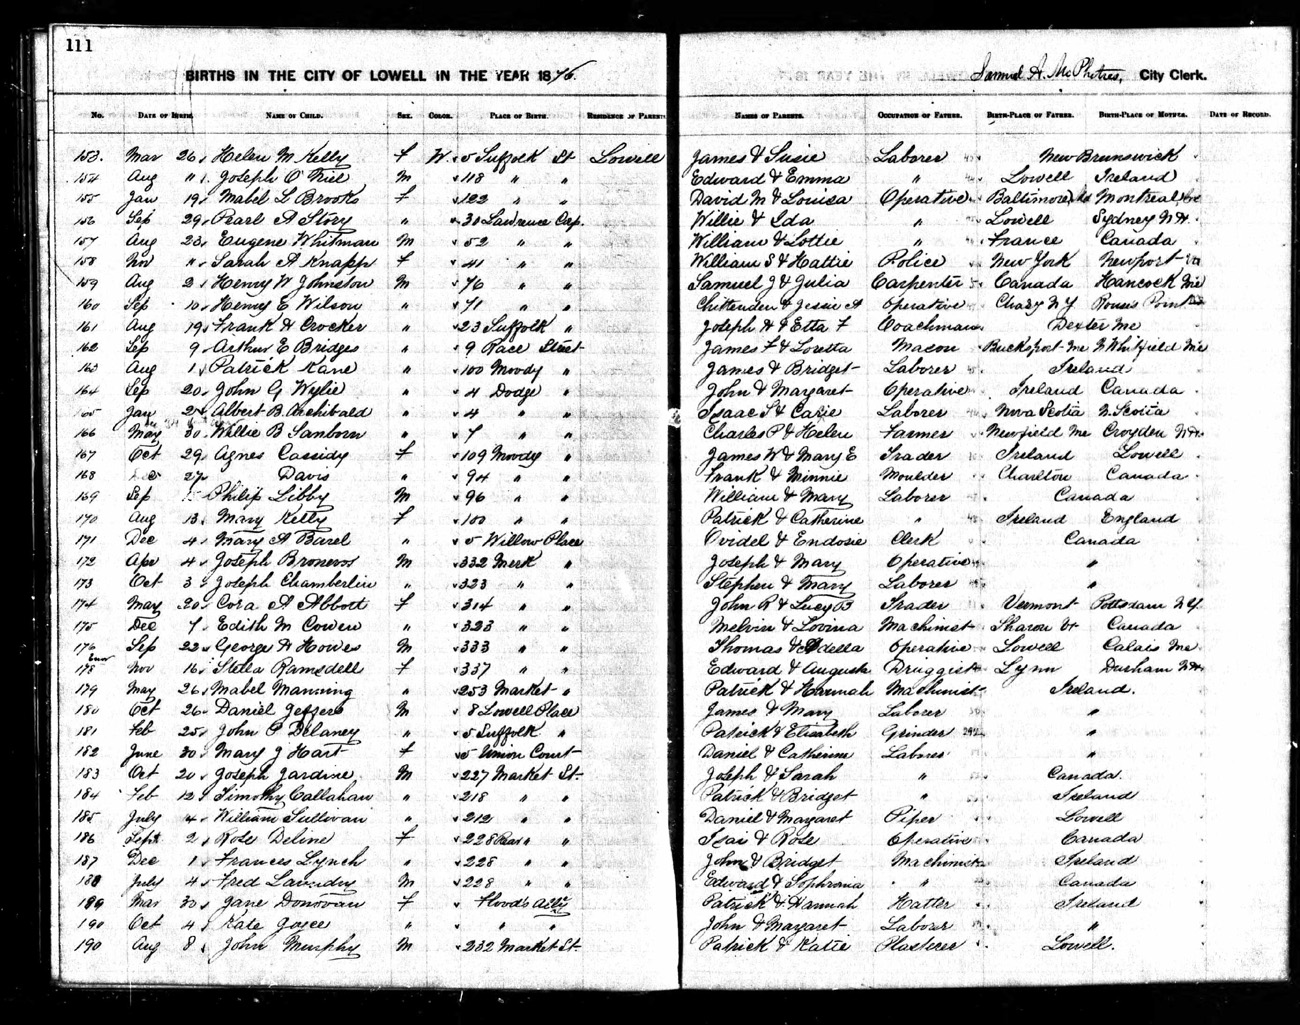 111
BIRTHS IN THE CITY OF LOWELL IN THE YEAR 1876. Samuel A. McPhetres, City Clerk.
No. DATE OF BIRTH. NAME OF CHILD. SEX. COLOR. PLACE OF BIRTH. RESIDENCE OF PARENTS NAMES OF PARENTS. OCCUPATION OF FATHER. BIRTH-PLACE OF FATHER. BIRTH-PLACE OF MOTHER. DATE OF RECORD.
153. Mar 26 Helen M Kelly F W 5 Suffolk St Lowell James & Susie Laborer New Brunswick
154 Aug 11 Joseph O'Niel M 118 " " Edward & Emma " Lowell Ireland
155 Jan 19 Mabel L Brooks F 122 " " David M & Louisa Operative Baltimore Montreal
156 Sep 29 Pearl A Story " 30 Lawrence Corp. Willie & Ida " Lowell Sydney
157 Aug 23 Eugene Whitman M 52 " " William & Lottie " France Canada
158 Nov " Sarah A Knapp F 41 " " William S & Hattie Police New York Newport
159 Aug 2 Henry W Johnston M 76 " " Samuel J & Julia Carpenter Canada Hancock Me
160 Sep 10 Henry E Wilson " 71 " " Chittenden & Jessie A Operative Chazy N.Y. Rouses Point
161 Aug 19 Frank H Crocker " 23 Suffolk " Joseph H & Etta F Coachman Dexter Me
162 Sep 9 Arthur E Bridges " 9 Race Street James F & Loretta Mason Bucksport Me N Whitfield Me
163 Aug 1 Patrick Kane " 100 Moody " James & Bridget Laborer Ireland
164 Sep 20 John G Wylie " 4 Dodge " John & Margaret Operative Ireland Canada
165 Jan 24 Albert B. Archibald " 4 " " Isaac S & Carie Laborer Nova Scotia N. Scotia
166 May 30 Willie B Sanborn " 7 " " Charles P & Helen Farmer Newfield Me Croyden N.H.
167 Oct 29 Agnes Cassidy F 109 Moody " James W & Mary E Trader Ireland Lowell
168 27 Davis " 94 " " Frank & Minnie Moulder Charlton Canada
169 Sep Philip Libby M 96 " " William & Mary Laborer Canada
170 Aug 13 Mary Kelly F 100 " " Patrick & Catherine " Ireland England
171 Dec 4 Mary A Barel " 5 Willow Place Ovidel & Endosie Clerk Canada
172 Apr 4 Joseph M 332 Merk " Joseph & Mary Operative "
173 Oct 3 Joseph Chamberlin " 323 " " Stephen & Mary Laborer "
174 May 20 Cora A Abbott F 314 " " John R & Lucy B Trader Vermont Pottsdam N.Y.
175 Dec 7 Edith M Cowen " 323 " " Melvin & Lovina Machinist Sharon Vt Canada
176 Sep 22 George H Howes M 333 " " Thomas & Odella Operative Lowell Calais Me
178 Nov 16 Stella Ramsdell F 337 " " Edward & Augusta Druggist Lynn Durham N.H.
179 May 26 Mabel Manning " 253 Market " Patrick & Hannah Machinist Ireland.
180 Oct 26 Daniel Jeffers M 8 Lowell Place James & Mary Laborer "
181 Feb 25 John P Delaney " 5 Suffolk " Patrick & Elizabeth Grinder "
182 June 30 Mary J Hart F 5 Union Court Daniel & Catherine Laborer "
183 Oct 20 Joseph Jardine M 227 Market St. Joseph & Sarah " Canada.
184 Feb 12 Timothy Callahan " 218 " " Patrick & Bridget " Ireland
185 July 4 William Sullivan " 212 " " Daniel & Margaret Piper Lowell
186 Sept 2 Rose Deline F 228 Rear " " Isai & Rose Operative Canada
187 Dec 1 Frances Lynch " 228 " " John & Bridget Machinist Ireland
188 July 4 Fred Laundry M 228 " " Edward & Sophronia " Canada
189 Mar 30 Jane Donovan F Flood's Ally Patrick & Hannah Hatter Ireland
190 Oct 4 Kate Joyce " " " John & Margaret Laborer "
190 Aug 8 John Murphy M 232 Market St. Patrick & Katie Plasterer Lowell.